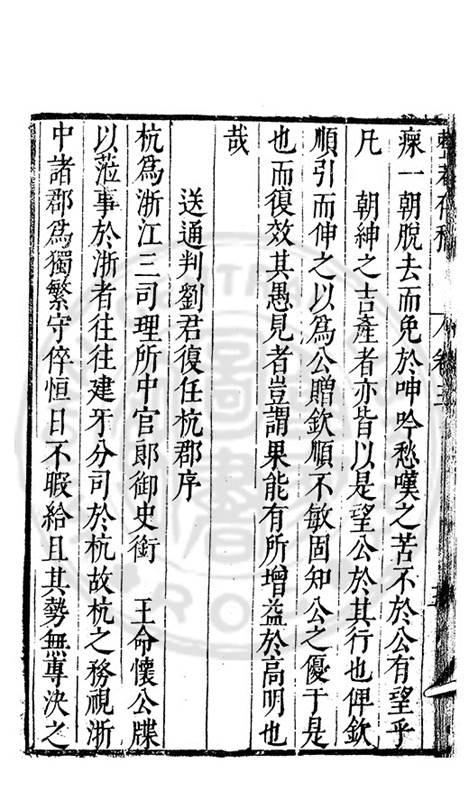 整菴存稿 卷五
瘝一朝脫去而免於呻吟愁嘆之苦不於公有望乎
凡 朝紳之吉產者亦皆以是望公於其行也俾欽
順引而伸之以為公贈欽順不敏固知公之優于是
也而復效其愚見者豈謂果能有所增益於高明也
哉
送通判劉君復任杭郡序
杭為浙江三司理所中官郎御史銜 王命懷公牒
以蒞事於浙者往往建牙分司於杭故杭之務視浙
中諸郡為獨繁守倅恒日不暇給且其勢無專決之